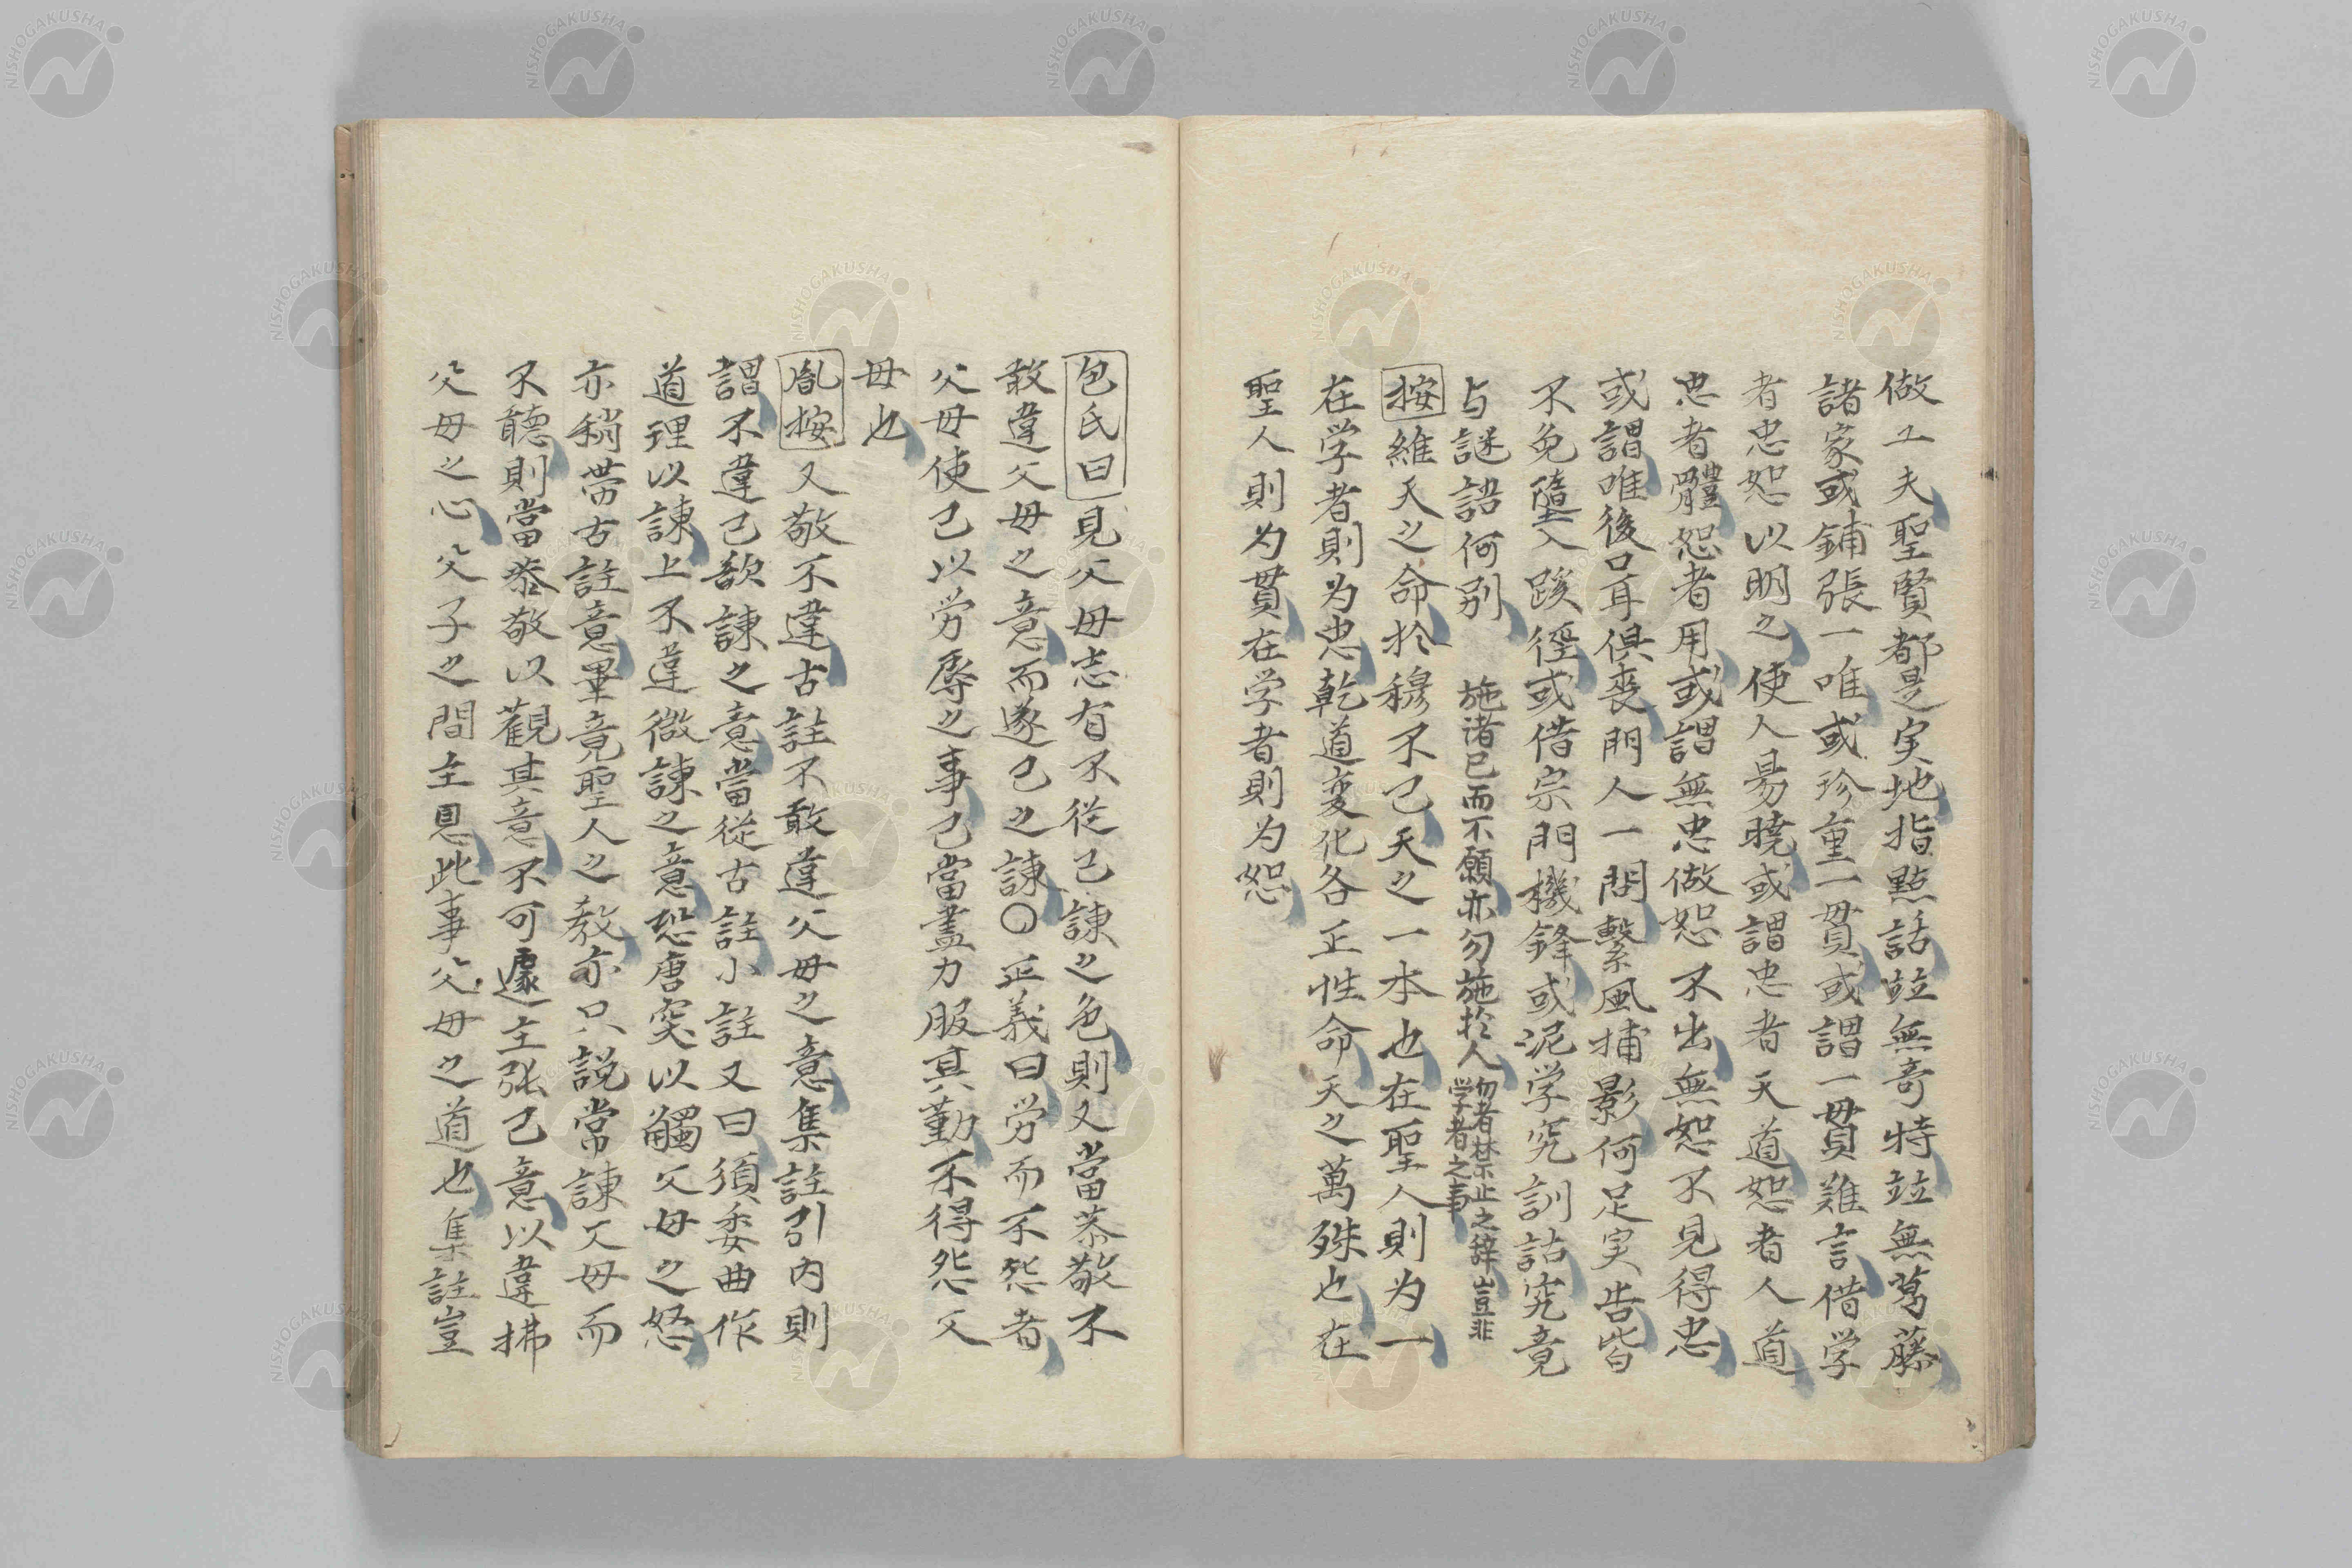 做工夫聖賢都是実地指點話竝無奇特竝無葛藤
諸家或鋪張一唯或珍重一貫或謂一貫難言借学
者忠恕以明之使人易曉或謂忠者天道恕者人道
忠者體恕者用或謂無忠做恕不出無恕不見得忠
或謂唯後口耳俱喪門人一問繫風捕影何足実告皆
不免墮入蹊徑或借宗門機鋒或泥学究訓詁究竟
与謎語何別 施諸己而不願亦勿施於人勿者禁止之辞豈非学者之事
按維天之命於穆不已天之一本也在聖人則为一
在学者則为忠乾道変化各正性命天之萬殊也在
聖人則为貫在学者則为恕
包氏曰見父母志有不從己諫之色則又當恭敬不
敢違父母之意而遂己之諫〇正義曰労而不怨者
父母使己以労辱之事己當盡力服其勤不得怨父
母也
胤按又敬不違古註不敢違父母之意集註引内則
謂不違己欲諫之意當從古註小註又曰須委曲作
道理以諫上不違微諫之意恐唐突以觸父母之怒
亦稍帯古註意畢竟聖人之教亦只説常諫父母而
不聽則當恭敬以觀其意不可遽主張己意以違拂
父母之心父子之間主恩此事父母之道也集註豈
NISHOGAKUSHA